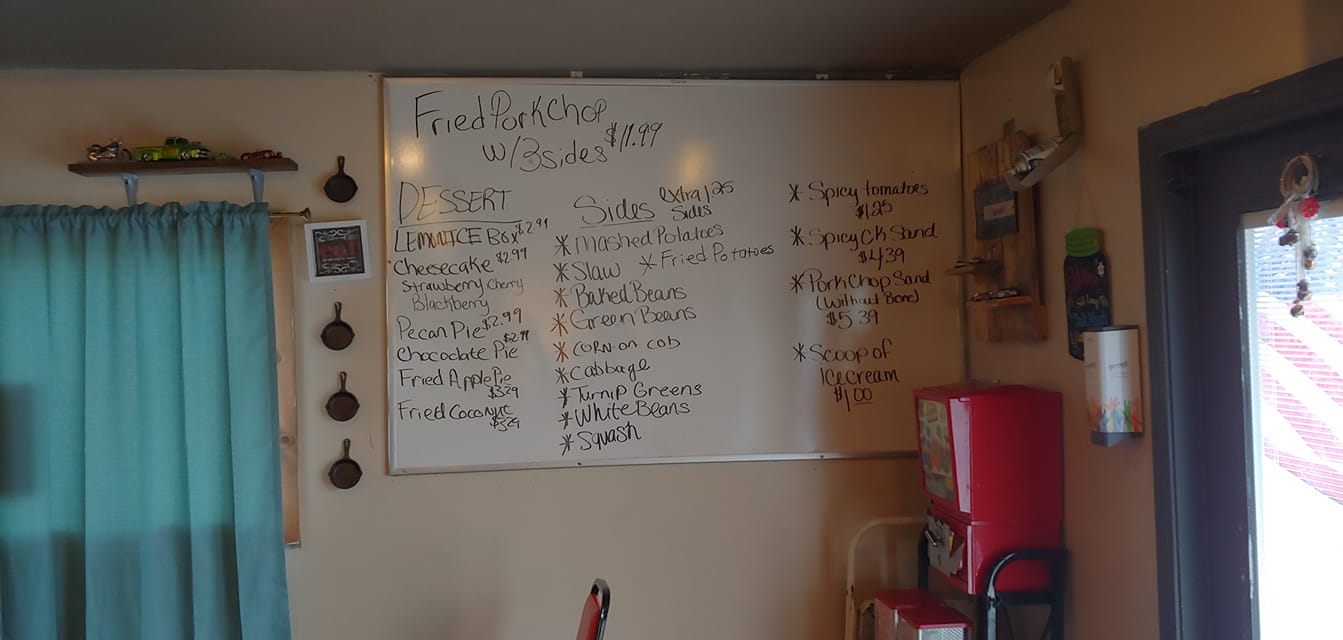 Fried Pork Chop
w/3 sides $11.99
DESSERT
LEMON ICE Box $2.99
Cheesecake $2.99
Strawberry Cherry
Blackberry
Pecan Pie $2.99
Chococlate Pie $2.99
Fried Apple Pie
$3.29
Fried Coconut
$3.29
Sides extra 1.25
Sides
* Mashed Potatoes
* Slaw * Fried Potatoes
* Baked Beans
* Green Beans
* CORN-ON COB
* Cabbage
* Turnip Greens
* White Beans
* Squash
* Spicy tomatoes
$1.25
* Spicy CK Sand
$4.39
* Pork Chop Sand
(Without Bone)
$5.39
* Scoop of
Ice cream
$1.00